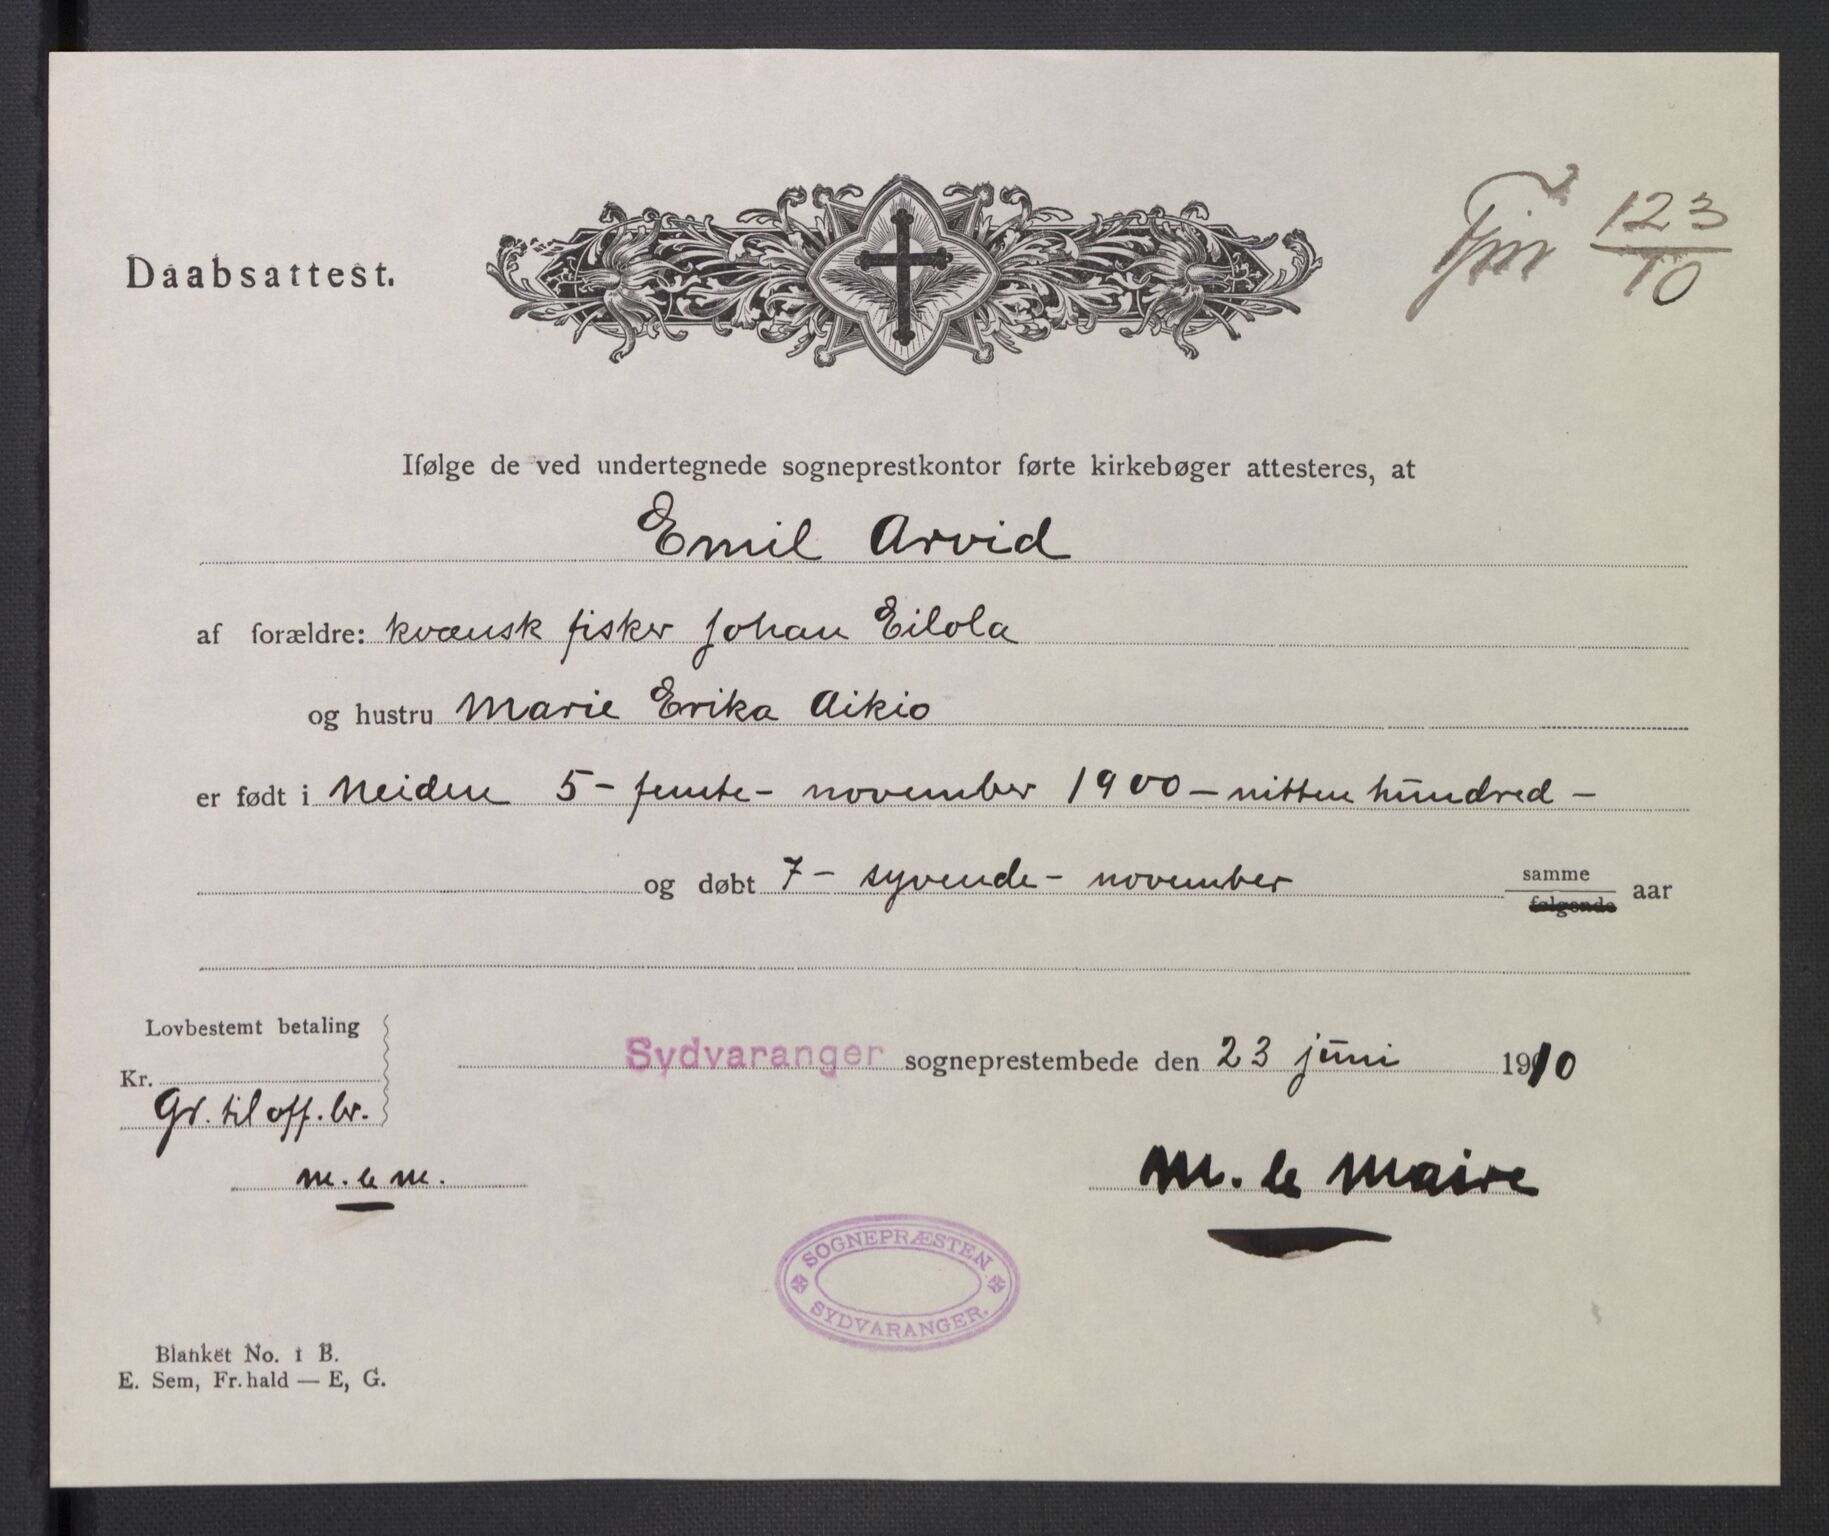 Daabsattest.
123
10
Ifølge de ved undertegnede sogneprestkontor førte kirkebøger attesteres, at
Emil Arvid
af forældre: kvænsk fisker Johan Eilola
og hustru Marie Erika Aikio
er født i Neiden 5 - femte - november 1900 - nitten hundred -
og døbt 7 - syvende - november samme følgende aar
Lovbestemt betaling
Kr.
Gr. til off. br.
m. le m.
Sydvaranger sogneprestembede den 23 juni 1910
M. le Maire
SOGNEPRÆSTEN
SYDVARANGER.
Blanket No. 1 B.
E. Sem, Fr.hald — E, G.